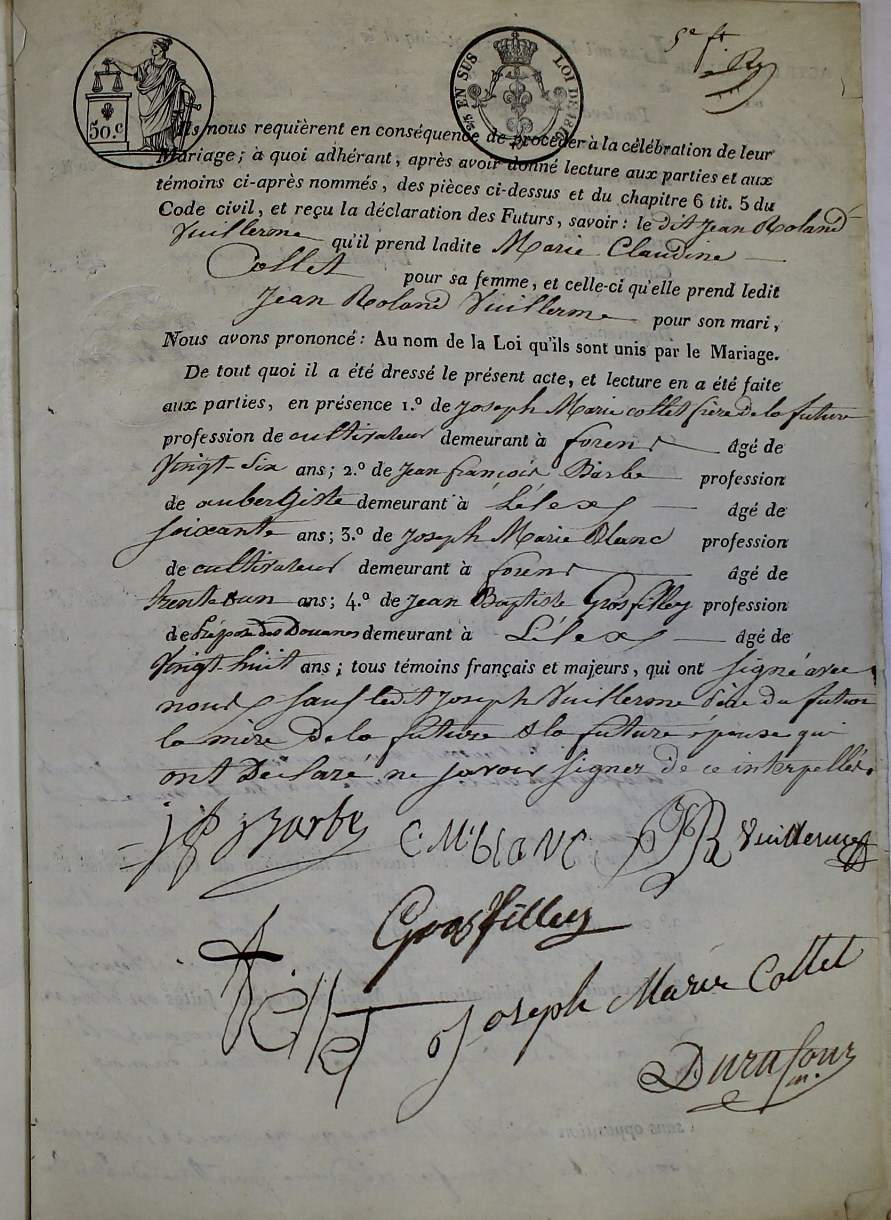 5e ft
50.c
2/5 EN SUS LOI DE 1816
Ils nous requièrent en conséquence de procéder à la célébration de leur
Mariage; à quoi adhérant, après avoir donné lecture aux parties et aux
témoins ci-après nommés, des pièces ci-dessus et du chapitre 6 tit. 5 du
Code civil, et reçu la déclaration des Futurs, savoir: le dit Jean Roland
Vuillerme qu'il prend ladite Marie Claudine
Collet pour sa femme, et celle-ci qu'elle prend ledit
Jean Roland Vuillerme pour son mari,
Nous avons prononcé: Au nom de la Loi qu'ils sont unis par le Mariage.
De tout quoi il a été dressé le présent acte, et lecture en a été faite
aux parties, en présence 1.º de Joseph Marie collet frère de la future
profession de cultivateur demeurant à forens âgé de
Vingt-Six ans; 2.º de Jean françois Barbe profession
de aubergiste demeurant à Lélex âgé de
soixante ans; 3.º de Joseph Marie Blanc profession
de cultivateur demeurant à forens âgé de
trente & un ans; 4.º de Jean Baptiste Grosfilley profession
de Préposé des Douanes demeurant à Lélex âgé de
Vingt-huit ans; tous témoins français et majeurs, qui ont signé avec
nous sauf ledit Joseph Vuillerme père du futur
la mère de la future & la future épouse qui
ont Déclaré ne savoir signer de ce interpellés.
jf Barbe C. M. blanc JR Vuillerme
Grosfilley
Joseph Marie Collet
Durafour
m.